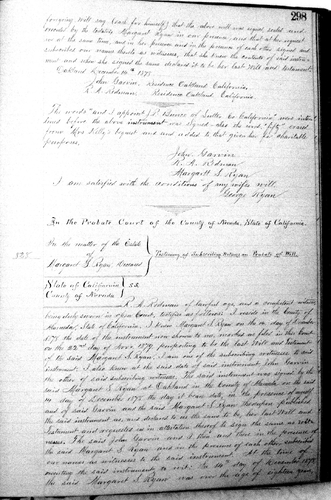 298
foregoing Will say (each for himself) that the above will was signed sealed and
by the testatrix Margaret Ryan in our presence, and that at her request
we at the same time, and in her presence and in the presence of each other signed and
subscribed our names thereto as witnesses, that she knew the contents of said instru-
ment and when she signed the same declared it to be her last Will and testament
Oakland December 14th 1878.
John Garvin, Residence Oakland California.
R. A. Redman, Residence Oakland, California
The words "and I appoint
fore the above instrument was signed also the word "fifty" erased
from Mrs Kelly's bequest and one added to that given her for charitable
purposes,
John Garvin
R. A. Redman
Margaret S. Ryan
I am satisfied with the conditions of my wifes will.
George Ryan
In the Probate Court of the County of Nevada, State of California.
In the matter of the Estate
of
Margaret S. Ryan, Deceased
Testimony of Subscribing Witness on Probate of Will.
State of California
County of Nevada
SS.
R. A. Redman of lawful age, and a competent witness
being duly sworn in open Court, testifies as follows: I reside in the County of
Alameda, State of California. I knew Margaret S. Ryan on the 14 day of December
1878, the date of the instrument now shown to me, marked as filed in this Court
on the 22nd day of 1879, purporting to be the last Will and Testament
of the said Margaret S. Ryan. I am one of the subscribing witnesses to said
instrument. I also knew at the said date of said instrument John Garvin
the other of said subscribing witnesses. The said instrument was signed by the
said Margaret S. Ryan at Oakland in the County of Alameda on the said
14 day of December 1878, the day it bears date, in the presence of myself
and of said Garvin and the said Margaret S. Ryan thereupon published
the said instrument as, and declared to us the same to be her last Will and
Testament and requested us in attestation thereof to sign the same as wit-
nesses. The said John Garvin and I then and there in the presence of
the said Margaret S. Ryan and in the presence of each other, subscribed
our names as witnesses to the said instrument. At the time of
executing the said instrument to wit: the 14 day of December 1878
the said Margaret S. Ryan was over the age of eighteen years,